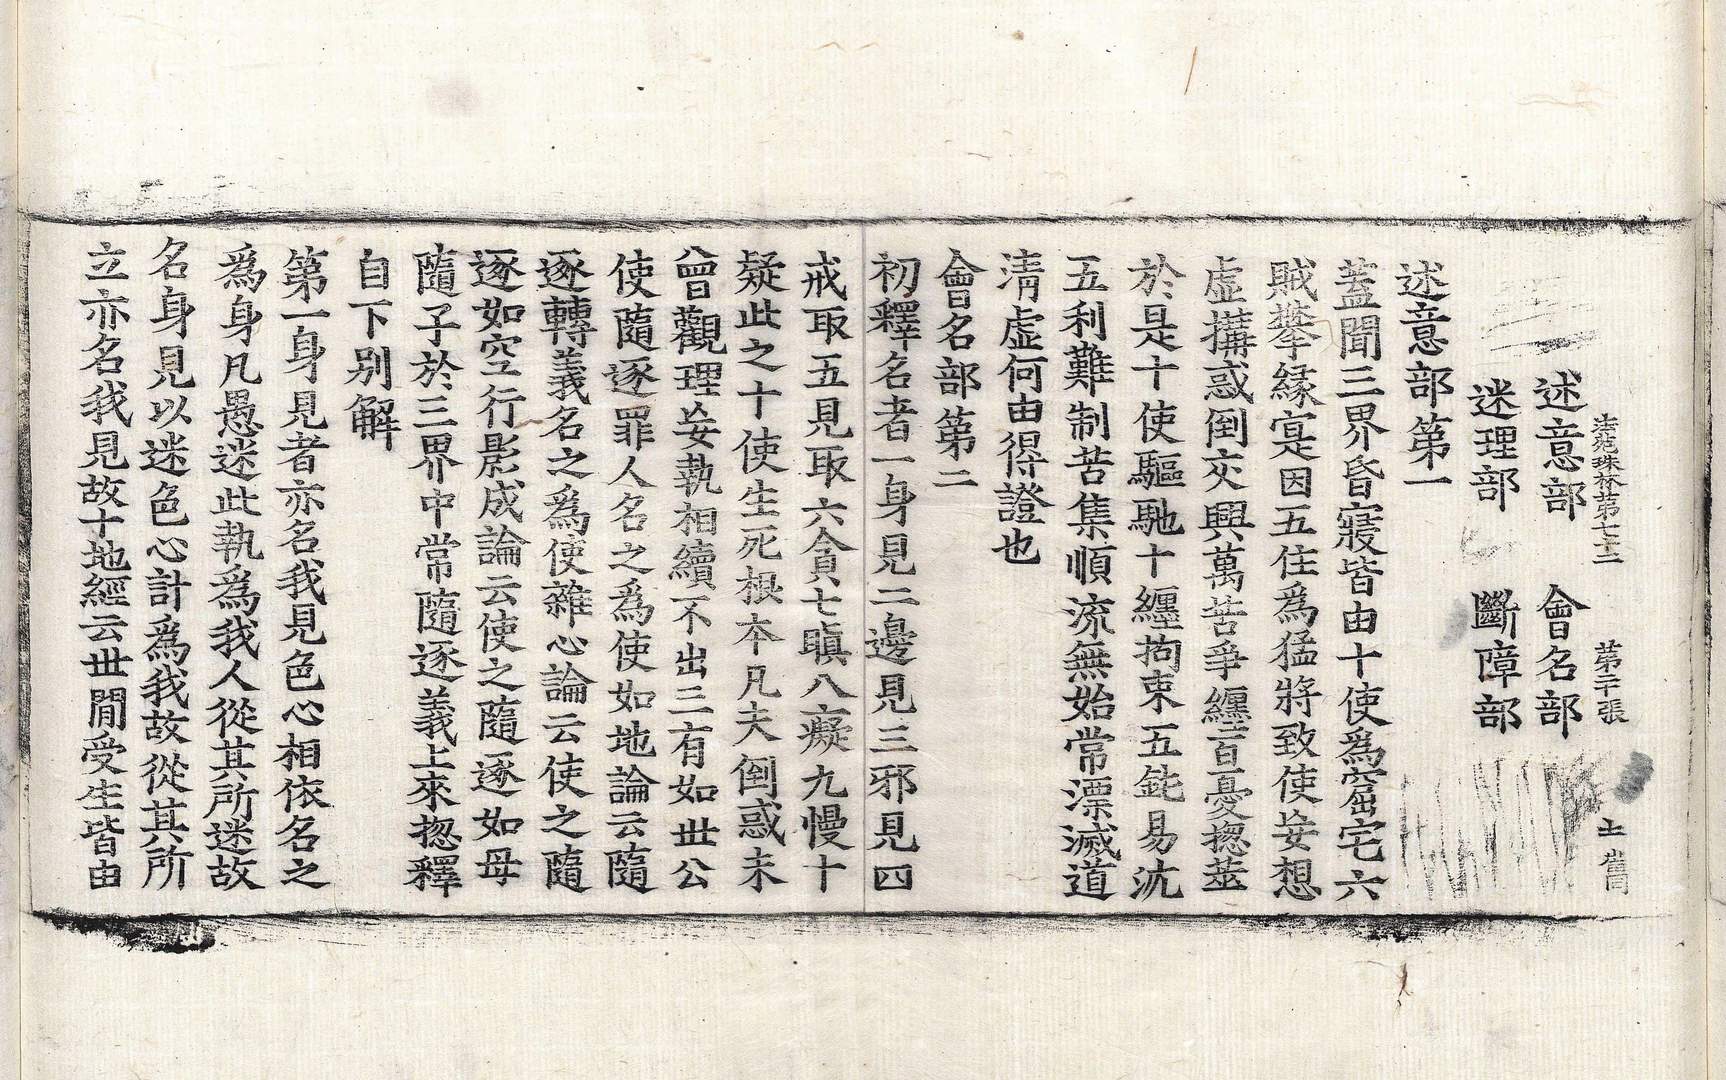 法苑珠林第七十二　第二張　土舊
述意部　會名部
迷理部　斷障部
述意部第一
蓋聞三界昏寢皆由十使爲窟宅六
賊攀緣寔是因五住爲猛將致使妄想
虛搆惑倒交興萬苦爭纏百憂揔萃
於是十使驅馳十纏拘束五鈍易沈
五利難制苦集順流無始常漂滅道
淸虛何由得證也
會名部第二
初釋名者一身見二邊見三邪見四
戒取五見取六貪七瞋八癡九慢十
疑此之十使生死根本凡夫倒惑未
曾觀理妄執相續不出三有如世公
使隨逐罪人名之爲使如地論云隨
逐轉義名之爲使雜心論云使之隨
逐如空行影成論云使之隨逐如母
隨子於三界中常隨逐義上來揔釋
自下別解
第一身見者亦名我見色心相依名之
爲身凡愚迷此執爲我人從其所迷故
名身見以迷色心計爲我故從其所
立亦名我見故十地經云世間受生皆由